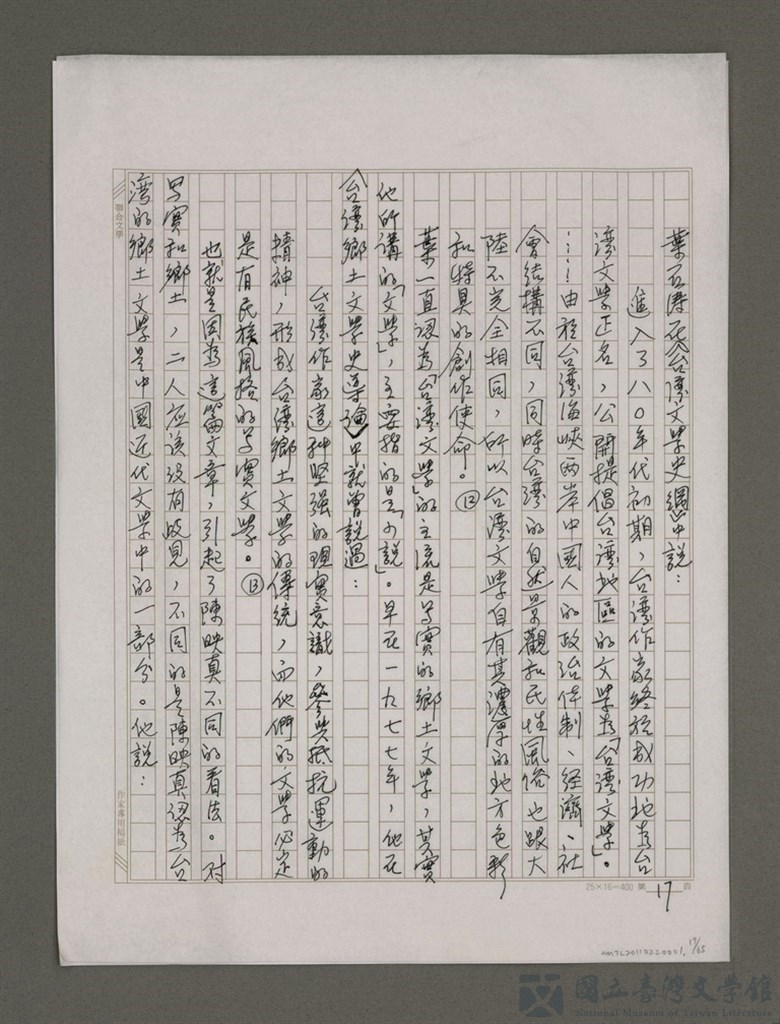 葉石濤在《台灣文學史綱》中說：
進入了八〇年代初期，台灣作家終於成功地為台
灣文學正名，公開提倡台灣地區的文學為「台灣文學」。
……由於台灣海峽兩岸中國人的政治体制、經濟、社
會結構不同，同時台灣的自然景觀和民性風俗也跟大
陸不完全相同，所以台灣文學自有其濃厚的地方色彩
和特具的創作使命。⑫
葉一直認為「台灣文學」的主流是写實的鄉土文學，其實
他所講的「文學」，主要指的是「小說」。早在一九七七年，他在
〈台灣鄉土文學史導論〉中就曾說過：
台灣作家這种堅强的現實意識，參與抵抗運動的
精神，形成台灣鄉土文學的傳統，而他們的文學必定
是有民族風格的写實文學。⑬
也就是因為這篇文章，引起了陳映真不同的看法。对
写實和鄉土，二人应該沒有歧見，不同的是陳映真認為台
灣的鄉土文學是中國近代文學中的一部分。他說：
聯合文學
作家專用稿紙
25×16＝400 第17頁
NMTL20110220001, 17/25
國立臺灣文學館
National Museum of Taiwan Literature